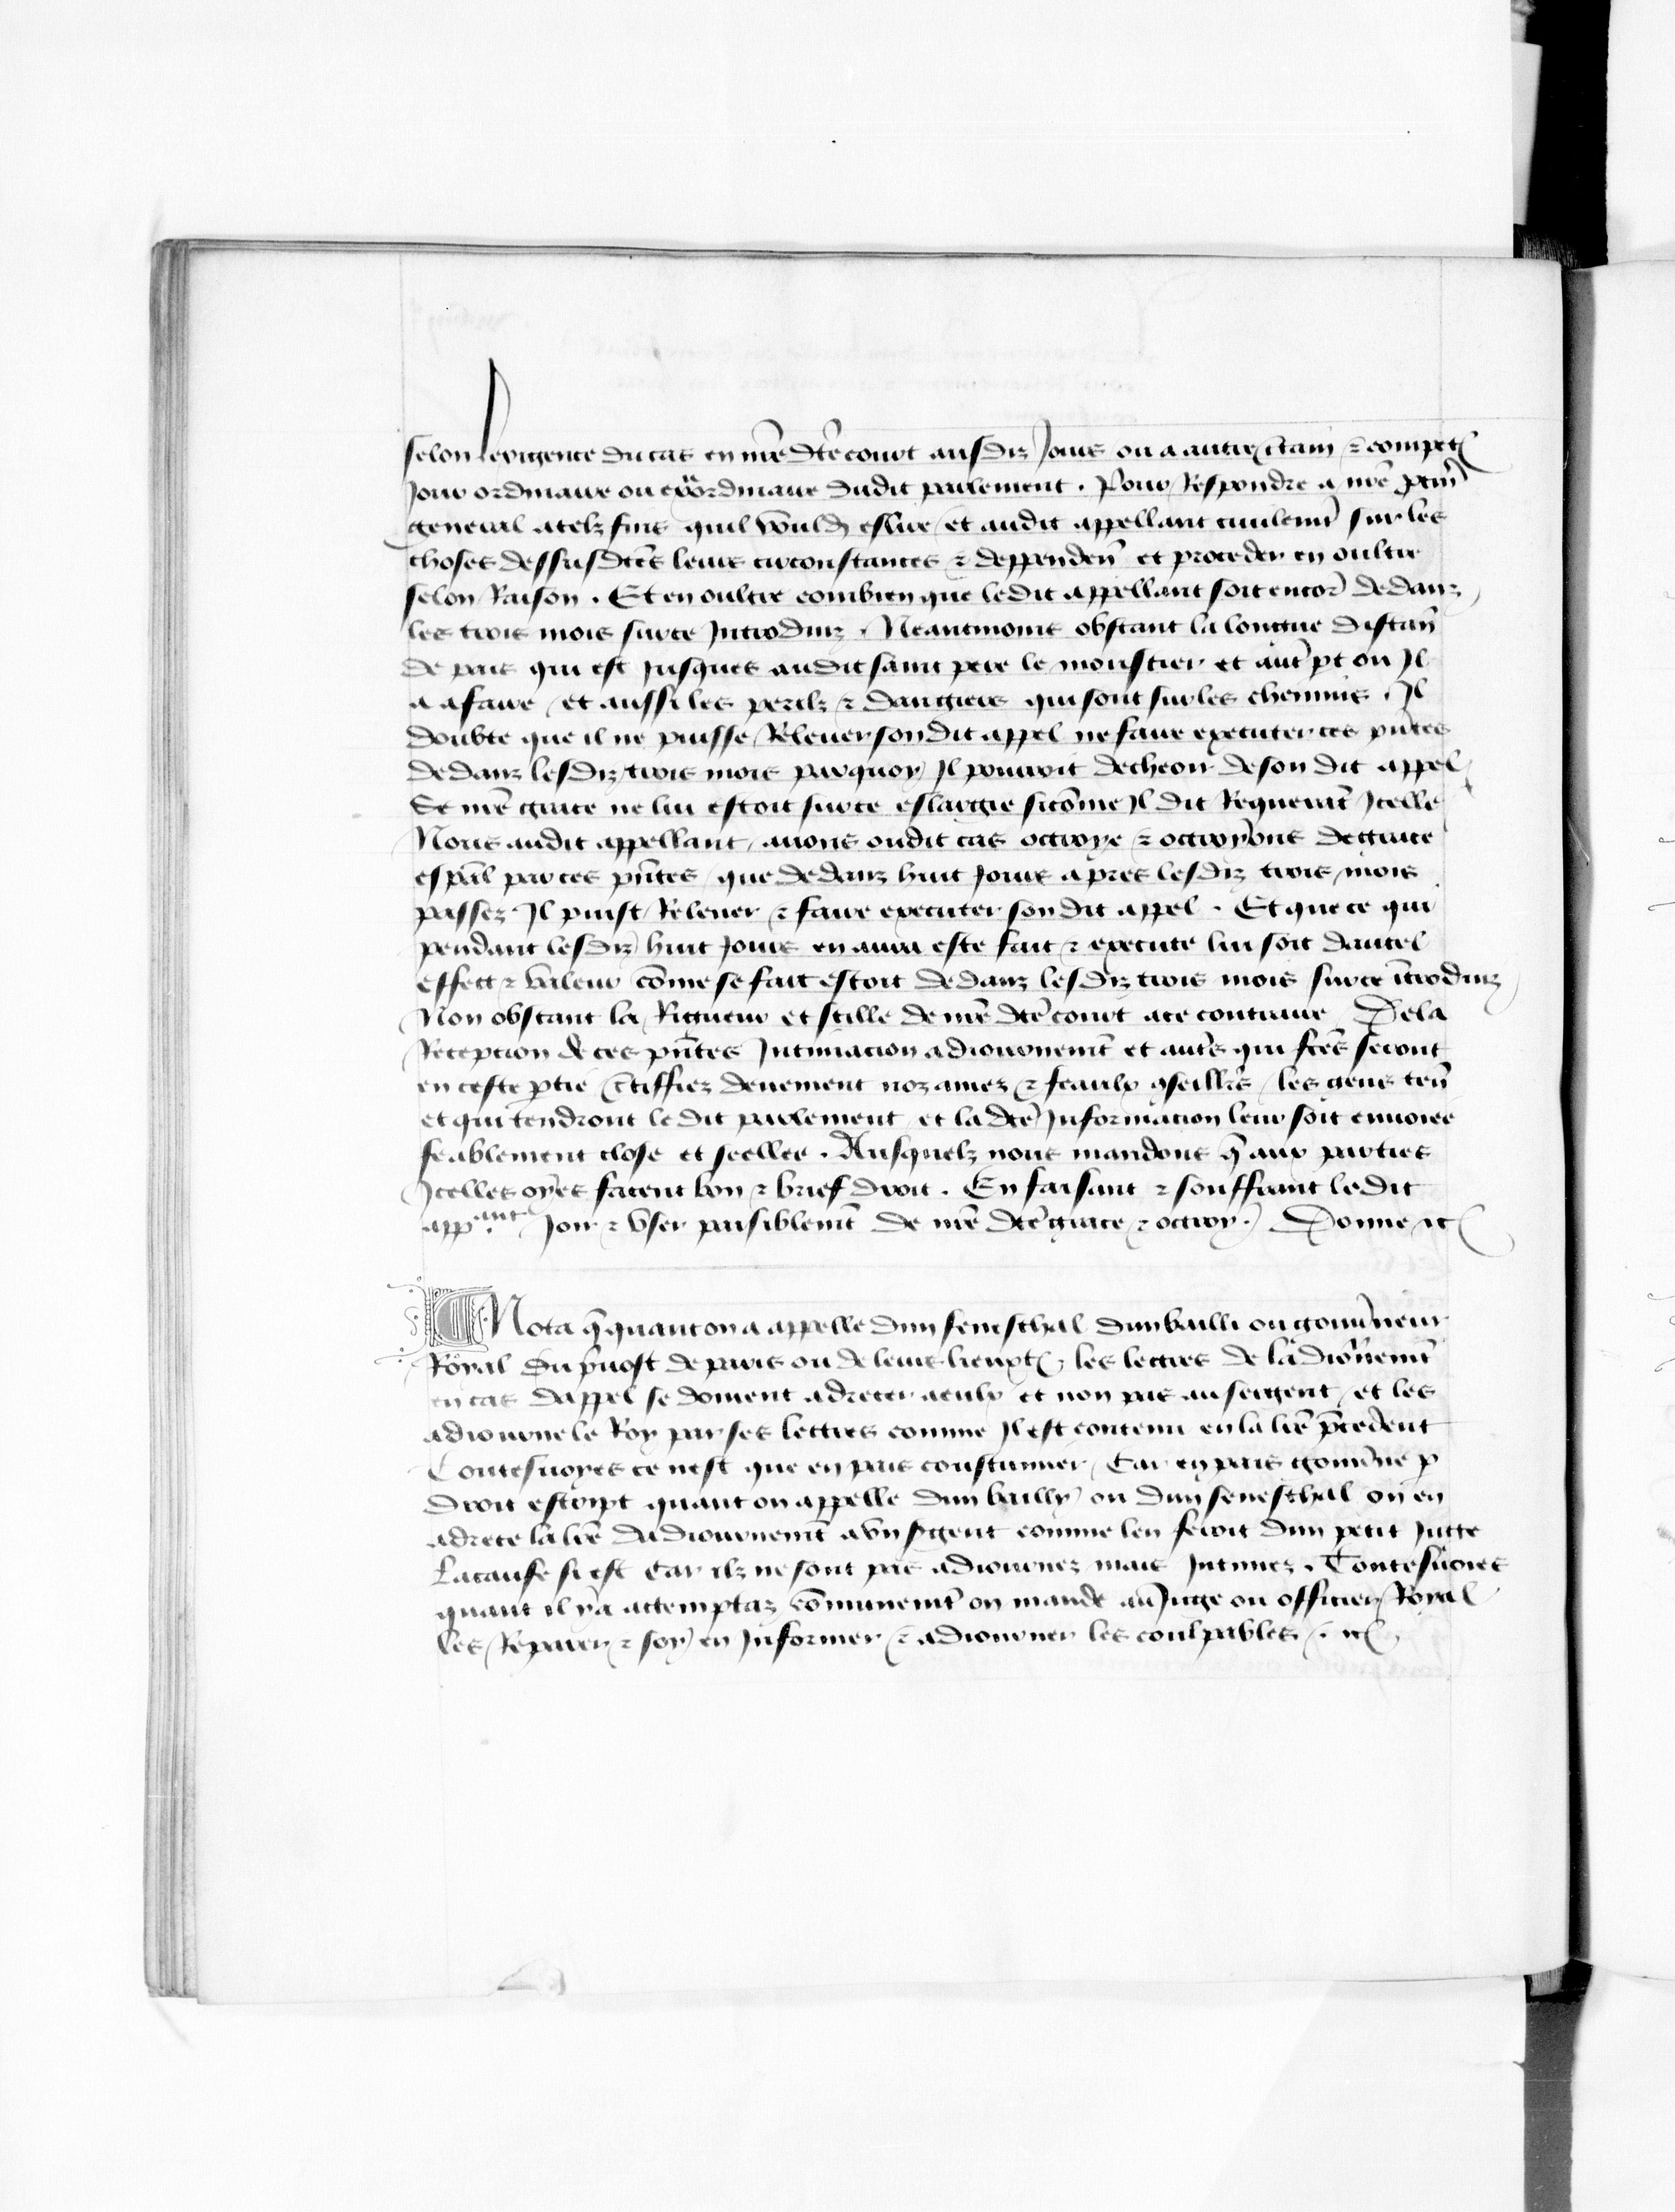 selon lexigence du cas en nr̃e dte court ausdiz Jours ou a autre c̃tain ⁊ compet
Jour ordinaire ou ext̃ordinaire dudit parlement . Pour Respondre a nr̃e
general a telz fins quil vouldr̃ eslire et audit appellant ciuilemt̃ sur les
choses dessusdc̃es leurs circonstances ⁊ deppenden̄ et proceder en oultre
selon Raison . Et en oultre combien que ledit appellant soit encor̃ dedanz
les trois mois surce Introduiz . Neantmoins obstant la longue distan̄
de pais qui est Jusques audit saint pere le moustier et aut̃ pt ou Il
a afaire / et aussi les perilz ⁊ dangiers qui sont sur les chemins . Il
doubte que il ne puisse Releuer son dit appel ne faire executer ces pñtes
dedanz lesdiz trois mois parquoy Il pourroit decheoir de son dit appel
Se nr̃e grace ne lui estoit surce eslargie sicõme Il dit Requerãt Icelle
Nous audit appellant / auons oudit cas octroye ⁊ octroyons de grace
esp̃al par ces pñtes / que dedanz huit Jours apres lesdiz trois mois
passez Il puist Releuer ⁊ faire executer son dit appel . Et que ce qui
pendant lesdiz huit Jours en aura este fait ⁊ execute lui soit dautel
effect ⁊ valeur cõme se fait estoit dedanz lesdiz trois mois surce ĩtroduiz
Non obstant la Rigueur et stille de nr̃e dc̃e court a ce contraire De la
Recepcion de ces pñtes Intimacion adiournemt̃ et aut̃s qui fc̃es seront
en ceste ptie c̃tiffiez deuement noz amez ⁊ feaulx 9seill̃rs / les gens ten̄
et qui tendront ledit parlement et la dc̃e Informacion leur soit enuoiee
feablement close et seellee . Ausquelz nous mandons q̃ aux parties
Icelles oyes facent bon ⁊ brief droit . En faisant ⁊ souffrant ledit
app.ant Joir ⁊ vser paisiblemt̃ de nr̃e dc̃e grace ⁊ octroy . Donne ⁊c

Nota q̃ quant on a appelle dun seneschal dun bailli ou gouũneur
Royal du p̃uost de paris ou de leurs lieuxt̃ , les lettres de ladiour̃nemt̃
en cas dappel se doiuent adrecer a eulx et non pas au sergent / et les
adiourne le Roy par ses lettres comme Il est contenu en la lr̃e p̃cedent
Toutesuoyes ce nest que en pais coustumier / Car en pais gouũne p
droit escript quant on appelle dun bailly ou dun seneschal on en
adrece la lr̃e dadiournemt̃ a vn sgent comme len feroit dun petit Juge
La cause si est car ilz ne sont pas adiournez mais Intimez . Toutesuoies
quant il y a attemptaz cõmunemt̃ on mande au Juge ou officier Royal
les Reparer ⁊ soy en Informer ⁊ adiourner les coulpables . ⁊c